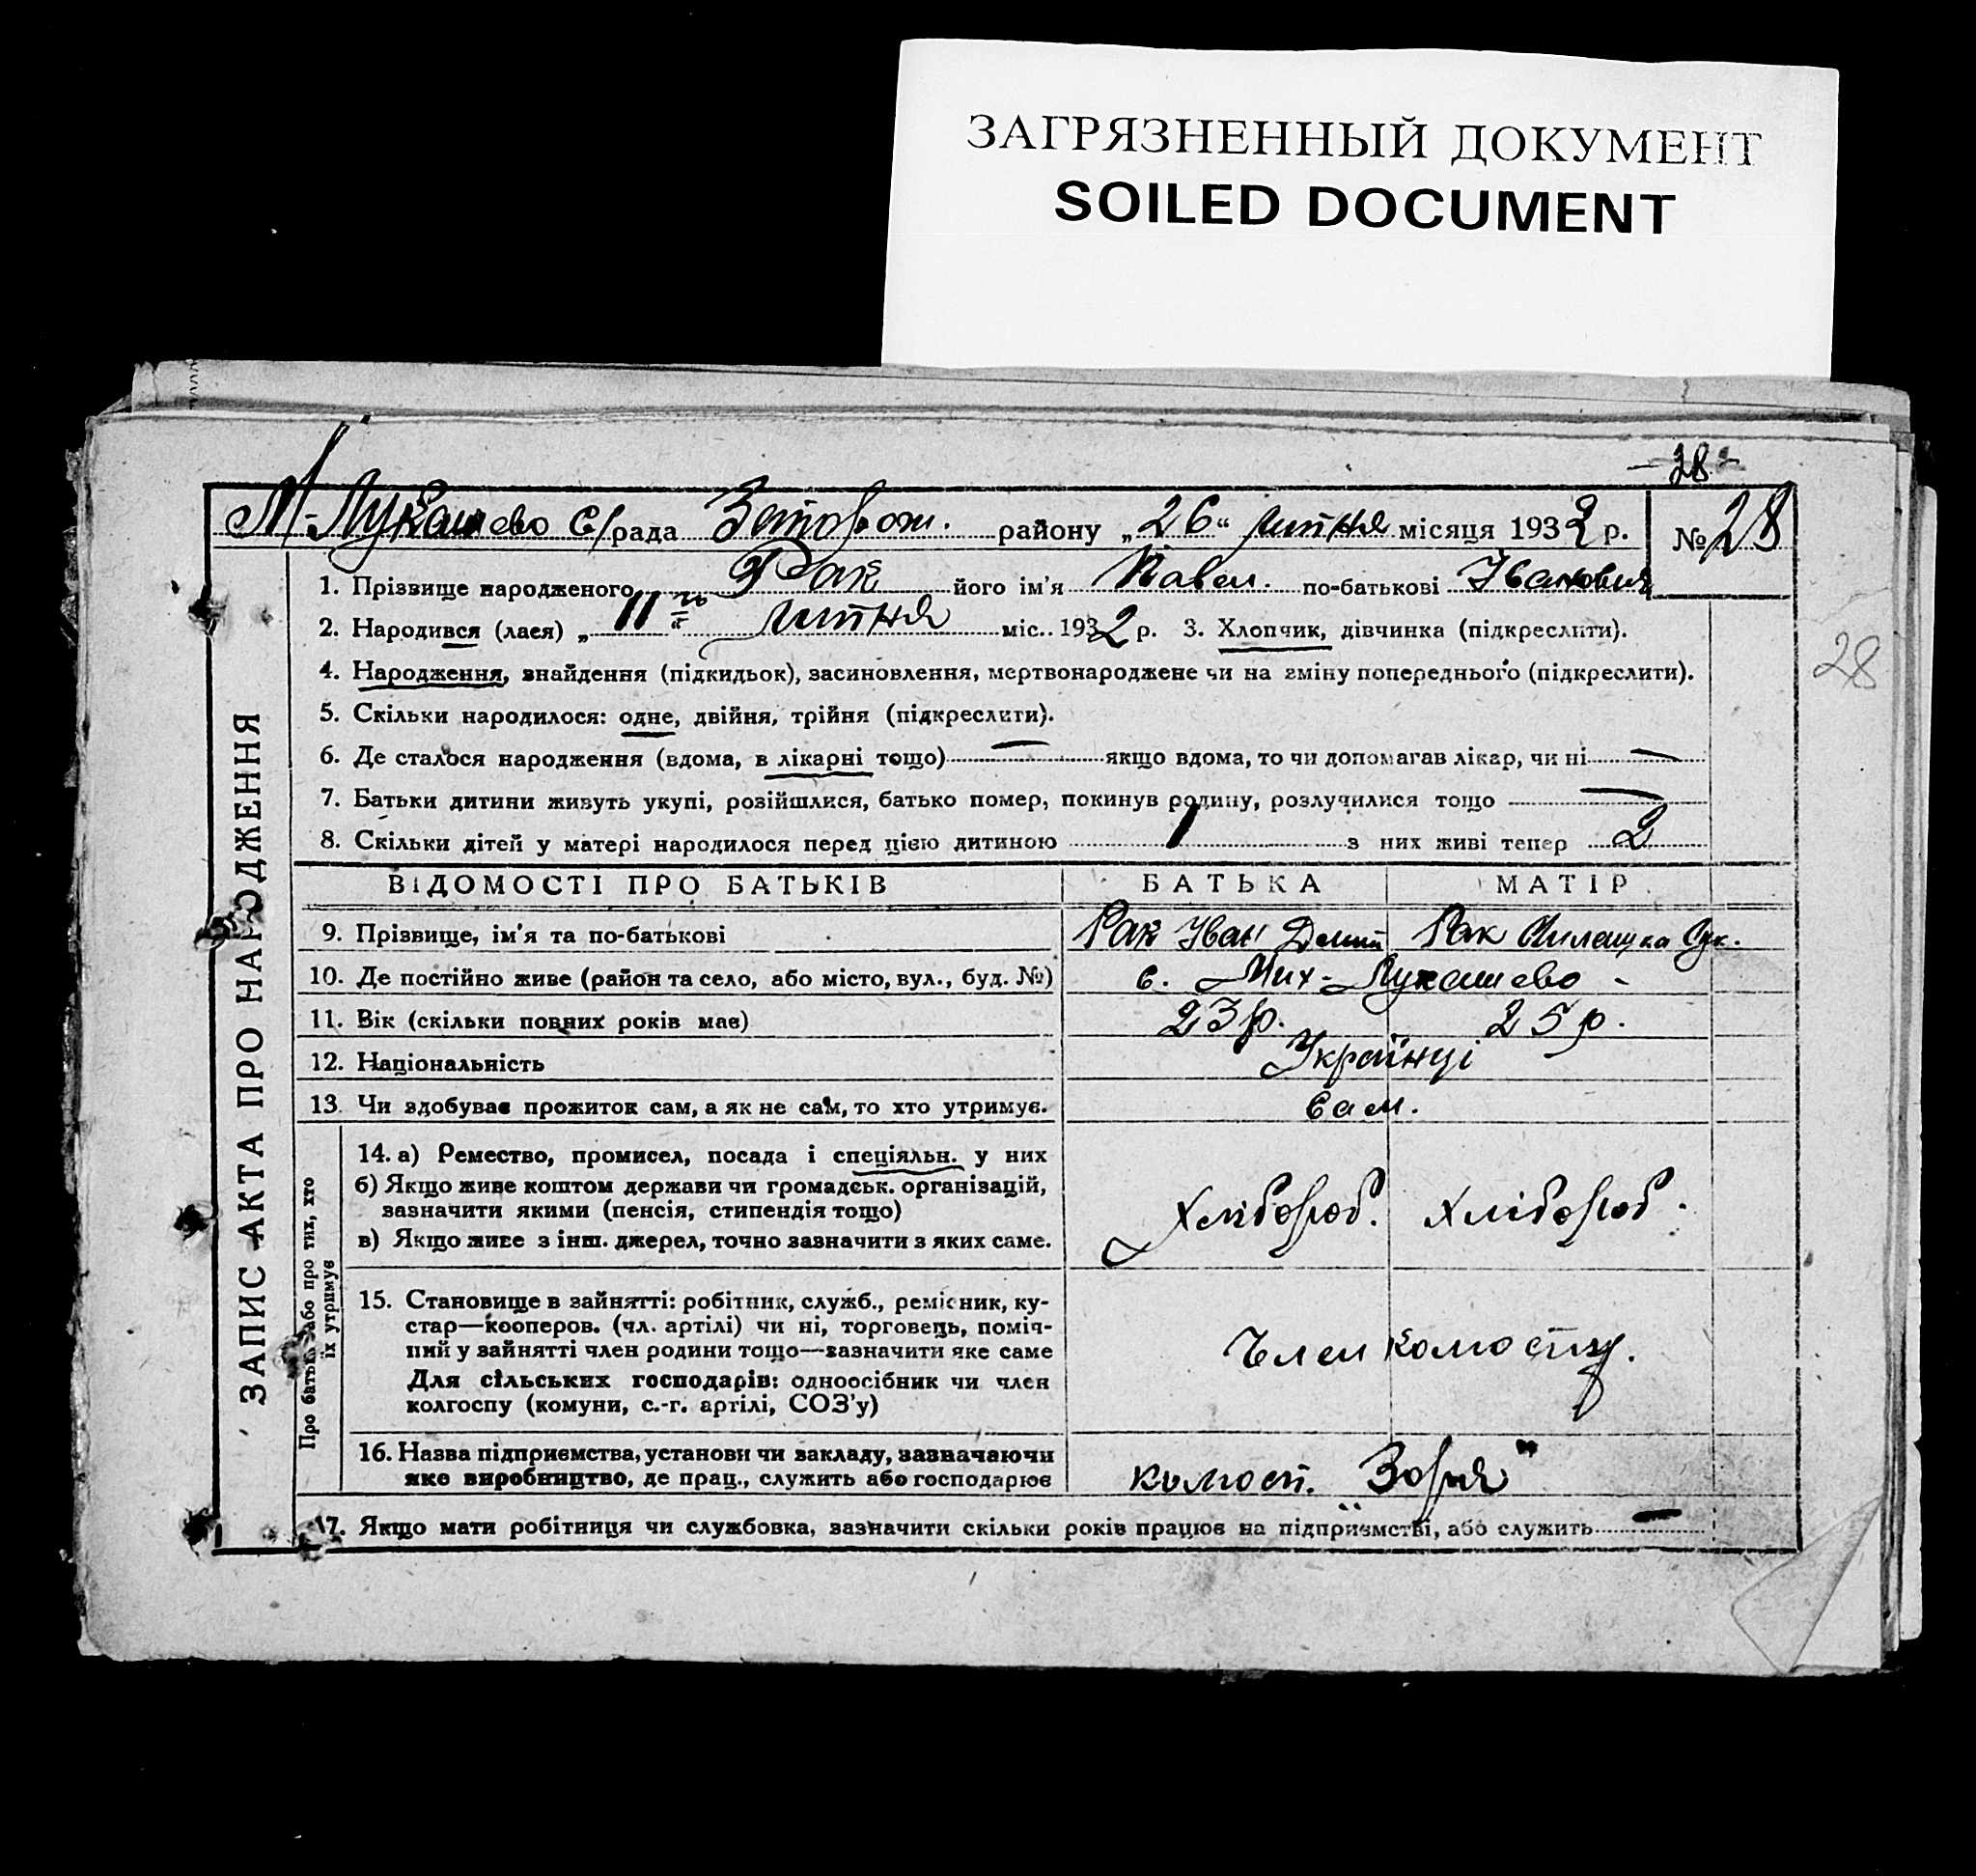 ЗАГРЯЗНЕННЫЙ ДОКУМЕНТ
SOILED DOCUMENT
- 28 -
М-Лукашево С/рада районну „26“ липня місяця 1932 р. № 28
1. Прізвище народженого Рак його ім'я Павел. по-батькові Іванович
2. Народився (лася) „11го“ липня міс.. 1932 р. 3. Хлопчик, дівчинка (підкреслити).
28
4. Народження, знайдення (підкидьок), засиновлення, мертвонароджене чи на зміну попереднього (підкреслити).
5. Скільки народилося: одне, двійня, трійня (підкреслити).
6. Де сталося народження (вдома, в лікарні тощо) — якщо вдома, то чи допомагав лікар, чи ні —
7. Батьки дитини живуть укупі, розійшлися, батько помер, покинув родину, розлучилися тощо —
8. Скільки дітей у матері народилося перед цією дитиною 1 з них живі тепер 2
ВІДОМОСТІ ПРО БАТЬКІВ БАТЬКА МАТІР
9. Прізвище, ім'я та по-батькові Рак Іван Рак
10. Де постійно живе (район та село, або місто, вул., буд. №) с. Мих-Лукашево -
11. Вік (скільки повних років має) 23 р. 25 р.
12. Національність Українці
13. Чи здобуває прожиток сам, а як не сам, то хто утримує. Сам.
14. а) Ремество, промисел, посада і спеціяльн. у них
б) Якщо живе коштом держави чи громадськ. організацій,
зазначити якими (пенсія, стипендія тощо)
в) Якщо живе з інш. джерел, точно зазначити з яких саме.
Хлібороб. Хлібороб.
15. Становище в зайнятті: робітник, служб., ремісник, ку-
стар—кооперов. (чл. артілі) чи ні, торговець, поміч-
ний у зайнятті член родини тощо—зазначити яке саме
Для сільських господарів: одноосібник чи член
колгоспу (комуни, с.-г. артілі, СОЗ'у)
Член
16. Назва підприємства, установи чи закладу, зазначаючи
яке виробництво, де прац., служить або господарює
„Зоря“
17. Якщо мати робітниця чи службовка, зазначити скільки років працює на підприємстві, або служить —
ЗАПИС АКТА ПРО НАРОДЖЕННЯ
Про батьк. або про тих, хто
їх утримує